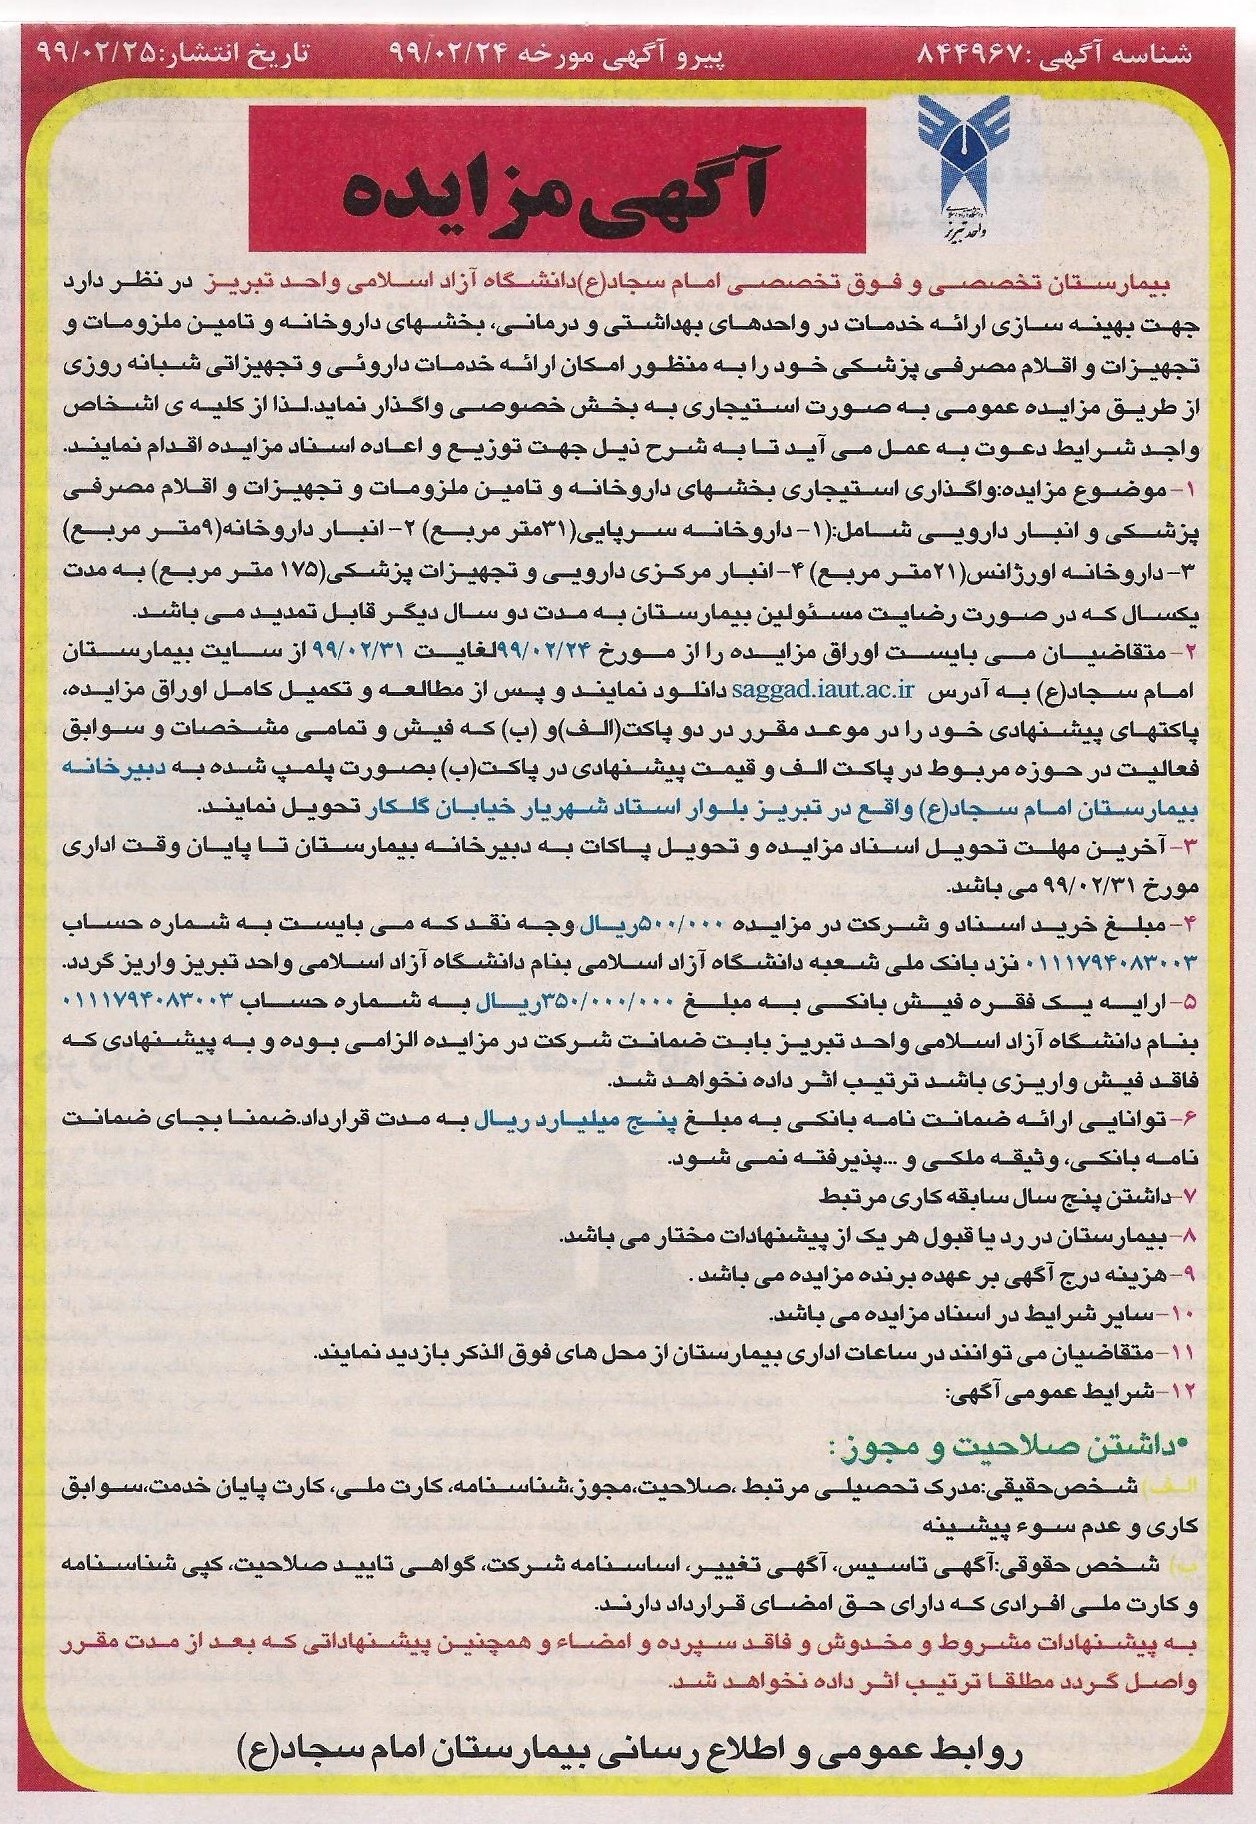 شناسه آگهی :۸۴۴۹۶۷ پیرو آگهی مورخه ۹۹/۰۲/۲۴ تاریخ انتشار:۹۹/۰۲/۲۵
واحد تبریز
آگهی مزایده
بیمارستان تخصصی و فوق تخصصی امام سجاد(ع)دانشگاه آزاد اسلامی واحد تبریز در نظر دارد
جهت بهینه سازی ارائه خدمات در واحدهای بهداشتی و درمانی، بخشهای داروخانه و تامین ملزومات و
تجهیزات و اقلام مصرفی پزشکی خود را به منظور امکان ارائه خدمات داروئی و تجهیزاتی شبانه روزی
از طریق مزایده عمومی به صورت استیجاری به بخش خصوصی واگذار نماید.لذا از کلیه ی اشخاص
واجد شرایط دعوت به عمل می آید تا به شرح ذیل جهت توزیع و اعاده اسناد مزایده اقدام نمایند.
۱-موضوع مزایده:واگذاری استیجاری بخشهای داروخانه و تامین ملزومات و تجهیزات و اقلام مصرفی
پزشکی و انبار دارویی شامل:(۱-داروخانه سرپایی(۳۱متر مربع) ۲-انبار داروخانه(۹متر مربع)
۳-داروخانه اورژانس(۲۱متر مربع) ۴-انبار مرکزی دارویی و تجهیزات پزشکی(۱۷۵ متر مربع) به مدت
یکسال که در صورت رضایت مسئولین بیمارستان به مدت دو سال دیگر قابل تمدید می باشد.
۲-متقاضیان می بایست اوراق مزایده را از مورخ ۹۹/۰۲/۲۴لغایت ۹۹/۰۲/۳۱ از سایت بیمارستان
امام سجاد(ع) به آدرس saggad.iaut.ac.ir دانلود نمایند و پس از مطالعه و تکمیل کامل اوراق مزایده،
پاکتهای پیشنهادی خود را در موعد مقرر در دو پاکت(الف)و (ب) که فیش و تمامی مشخصات و سوابق
فعالیت در حوزه مربوط در پاکت الف و قیمت پیشنهادی در پاکت(ب) بصورت پلمپ شده به دبیرخانه
بیمارستان امام سجاد(ع) واقع در تبریز بلوار استاد شهریار خیابان گلکار تحویل نمایند.
۳-آخرین مهلت تحویل اسناد مزایده و تحویل پاکات به دبیرخانه بیمارستان تا پایان وقت اداری
مورخ ۹۹/۰۲/۳۱ می باشد.
۴-مبلغ خرید اسناد و شرکت در مزایده ۵۰۰/۰۰۰ریال وجه نقد که می بایست به شماره حساب
۰۱۱۱۷۹۴۰۸۳۰۰۳ نزد بانک ملی شعبه دانشگاه آزاد اسلامی بنام دانشگاه آزاد اسلامی واحد تبریز واریز گردد.
۵-ارایه یک فقره فیش بانکی به مبلغ ۳۵۰/۰۰۰/۰۰۰ریال به شماره حساب ۰۱۱۱۷۹۴۰۸۳۰۰۳
بنام دانشگاه آزاد اسلامی واحد تبریز بابت ضمانت شرکت در مزایده الزامی بوده و به پیشنهادی که
فاقد فیش واریزی باشد ترتیب اثر داده نخواهد شد.
۶-توانایی ارائه ضمانت نامه بانکی به مبلغ پنج میلیارد ریال به مدت قرارداد.ضمنا بجای ضمانت
نامه بانکی، وثیقه ملکی و ...پذیرفته نمی شود.
۷-داشتن پنج سال سابقه کاری مرتبط
۸-بیمارستان در رد یا قبول هر یک از پیشنهادات مختار می باشد.
۹-هزینه درج آگهی بر عهده برنده مزایده می باشد .
۱۰-سایر شرایط در اسناد مزایده می باشد.
۱۱-متقاضیان می توانند در ساعات اداری بیمارستان از محل های فوق الذکر بازدید نمایند.
۱۲-شرایط عمومی آگهی:
•داشتن صلاحیت و مجوز:
الف) شخص‌حقیقی:مدرک تحصیلی مرتبط ،صلاحیت،مجوز،شناسنامه، کارت ملی، کارت پایان خدمت،سوابق
کاری و عدم سوء پیشینه
ب) شخص حقوقی:آگهی تاسیس، آگهی تغییر، اساسنامه شرکت، گواهی تایید صلاحیت، کپی شناسنامه
و کارت ملی افرادی که دارای حق امضای قرارداد دارند.
به پیشنهادات مشروط و مخدوش و فاقد سپرده و امضاء و همچنین پیشنهاداتی که بعد از مدت مقرر
واصل گردد مطلقا ترتیب اثر داده نخواهد شد.
روابط عمومی و اطلاع رسانی بیمارستان امام سجاد(ع)